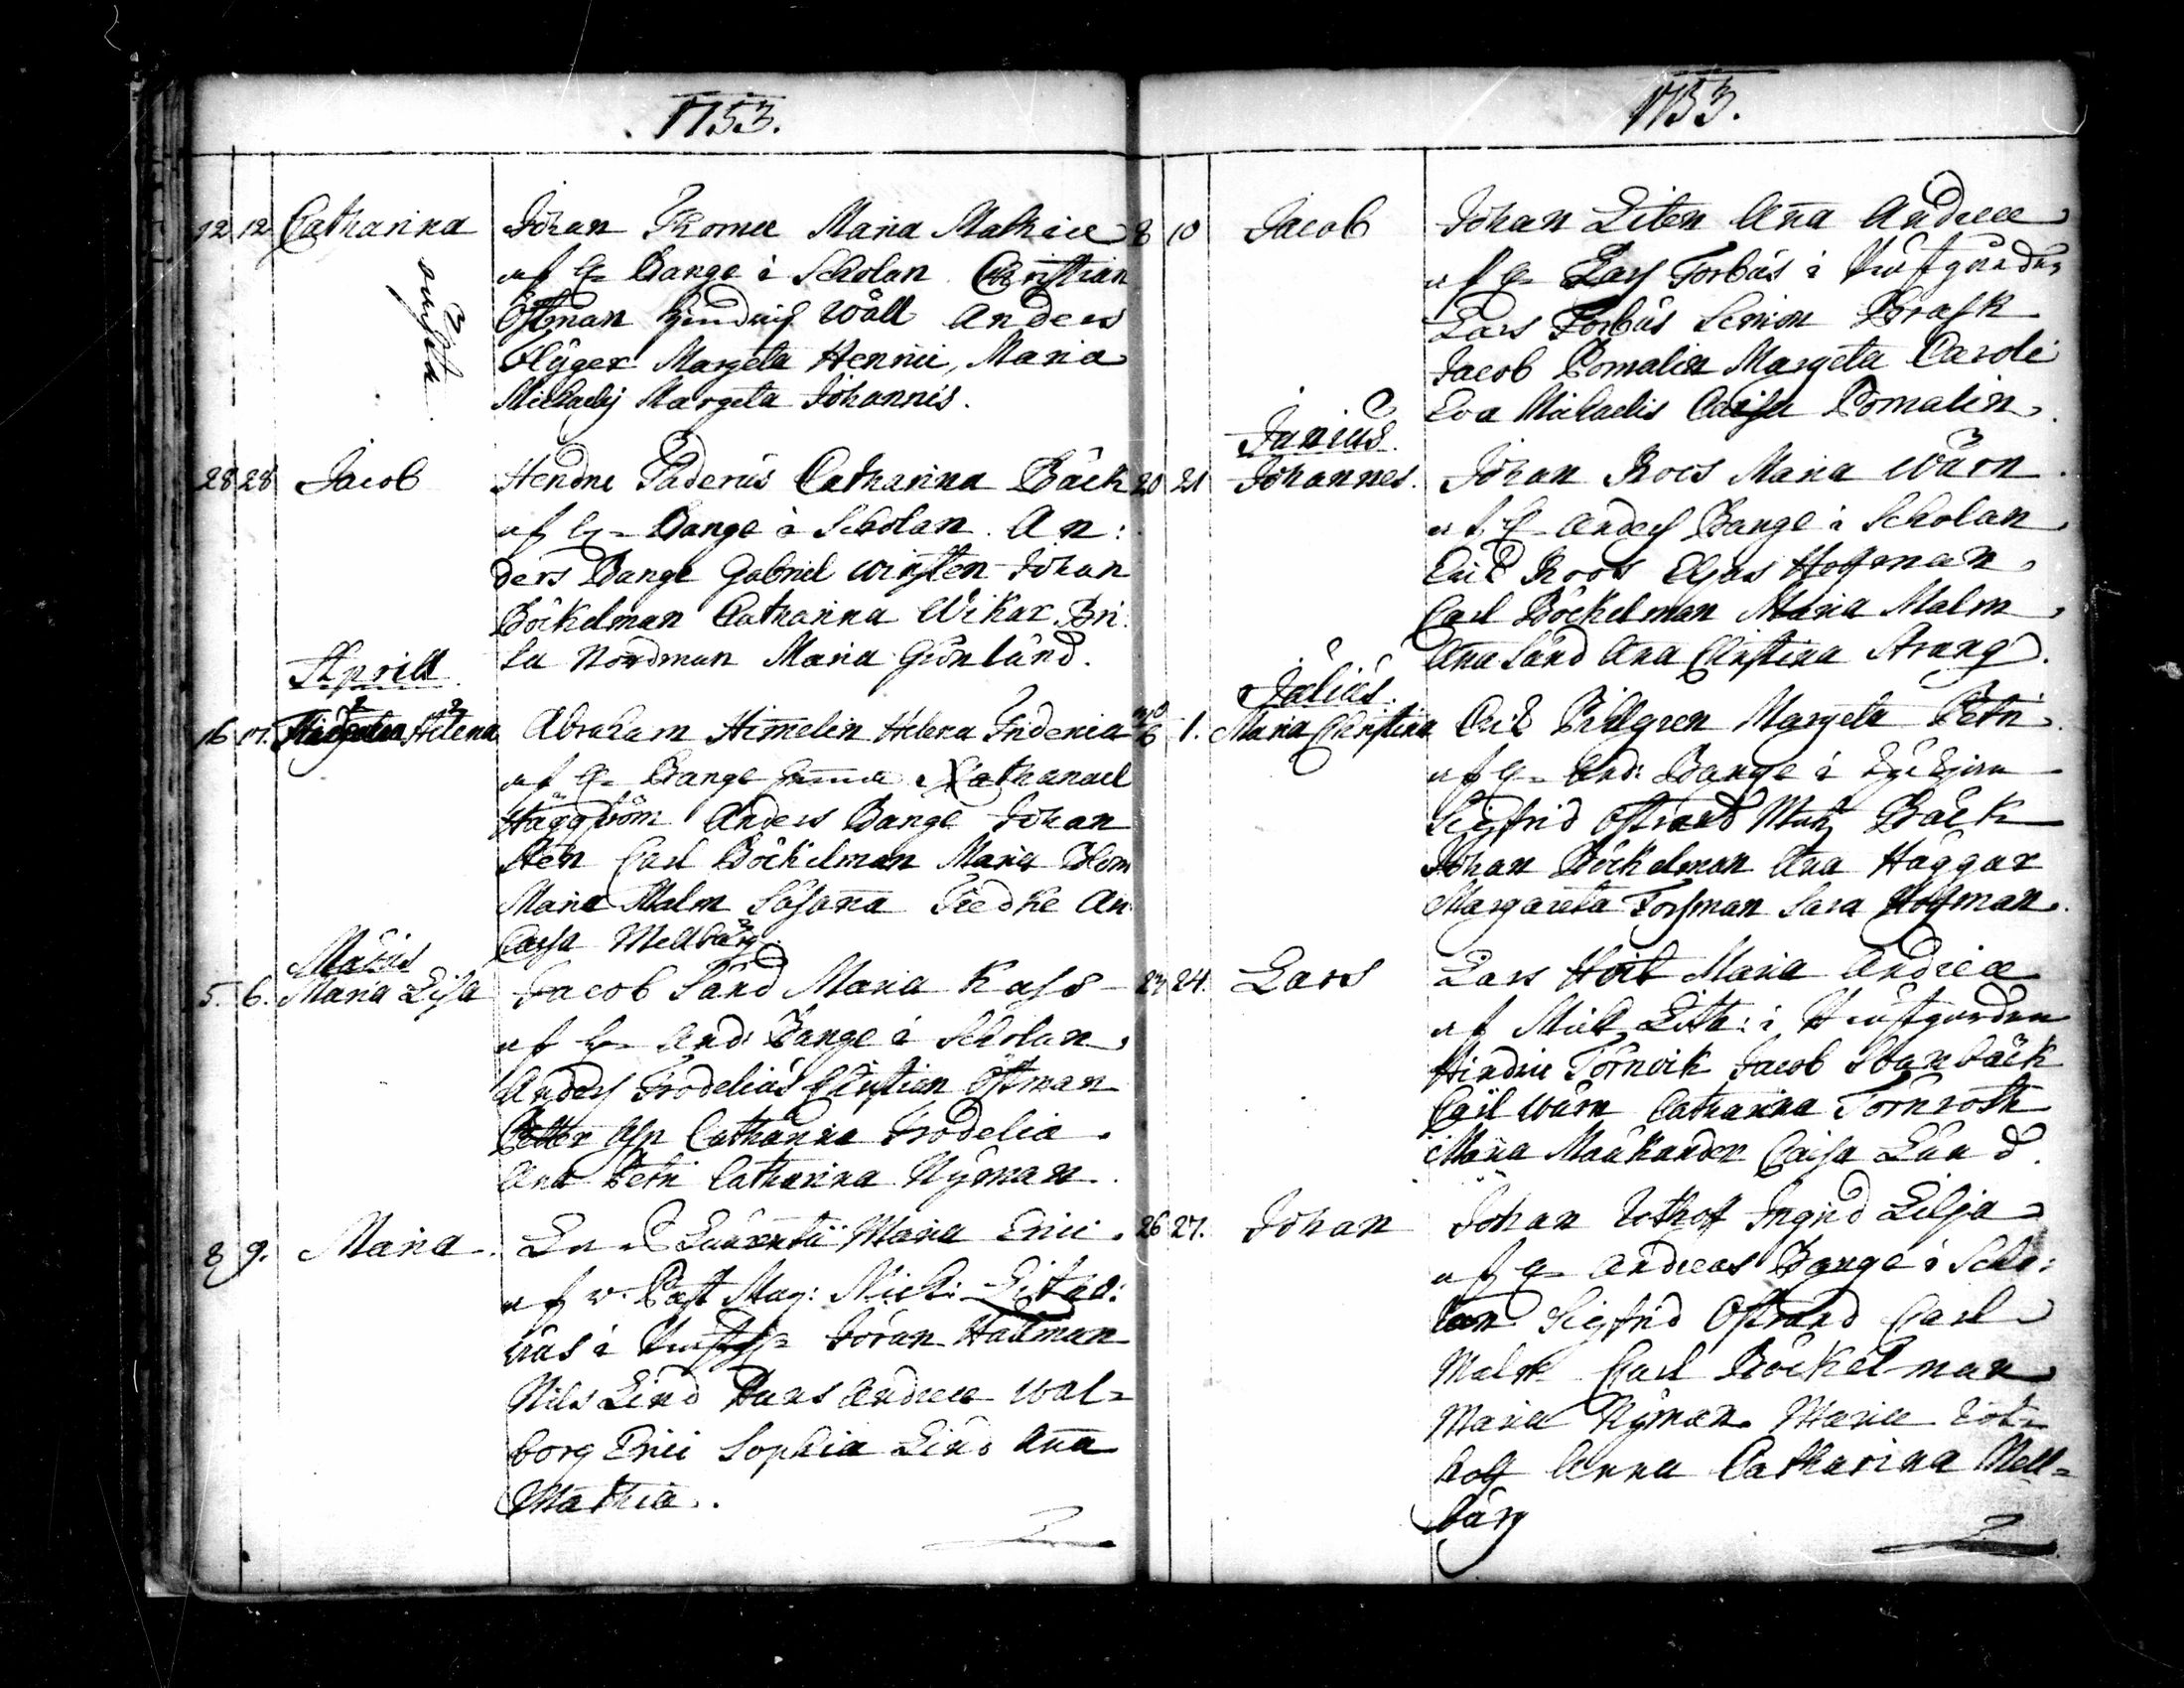 1753.
12 12 Catharina Johan Thomæ Maria Mathiæ
af H= Bange i Scholan Christian
oächta
Östman Hendrich Wåll Anders
Flyger Margeta Henrici, Maria
Michaelis Margeta Johannis.
28 28 Jacob Hendric Paderus Catharina Bäck
af H= Bange i Scholan. An:
ders Bange Gabriel Wirsten Johan
Böckelman Catharina Wikar Bri
ta Nordman Maria Grönlund.
Aprill
16 17. Helena Abraham Himelin Helena Frideria
af H= Bange Nathanael
Häggström Anders Bange Johan
Sten Carl Böckelman Maria Blom
Maria Malm Susana Tiedke An
Caisa Mellbärg.
Majus
5. 6. Maria Lisa Jacob Sund Maria Kass
af H= And: Bange i Scholan
Anders Frodelius Christian Östman
Petter Asp Catharina Frodelia
Ana Petri Catharina Nyman.
8 9. Maria Laurentii Maria Erici
af v. Past Mag: Mich: Lithov:
ius i Göran Hallman
Nils Lind Hans Andreæ Wal=
borg Erici Sophia Lind Ana
Mathiæ.
1753.
8 10 Jacob Johan Liten Ana Andreæ
af H= Lars Forbus i Prustgården
Lars Forbus Simon Brask
Jacob Pomalin Margeta Caroli
Eva Michaelis Caisa Pomalin.
Junius.
20 21 Johannes. Johan Roos Maria Wärn
af H= Anders Bange i Scholan
Eric Roos Elias Hoffman
Carl Böckelman Maria Malm
Ana Sund Ana Christina Strang.
Julius.
30/6 1. Maria Christina Eric Pihlgren Margeta Petri
af H= And: Bange i
Sigfrid Ostrand Bäck
Johan Böckelman Ana Häggar
Margareta Forssman Sara Hoffman.
23 24. Lars Lars Hoit Maria Andreæ
af Mich Lith: i Prustgården
Hindric Törnvik Jacob Svanbäck
Carl Wärn Catharina Törnroth
Maria Caisa Lund.
26 27. Johan Johan Rothof Ingrid Lilja
af H= Andreas Bange i Scho:
lan Sigfrid Ostrand Carl
Malm Carl Böckelman
Maria Nyman Maria Rot=
hoff Anna Catharina Mell=
bärg